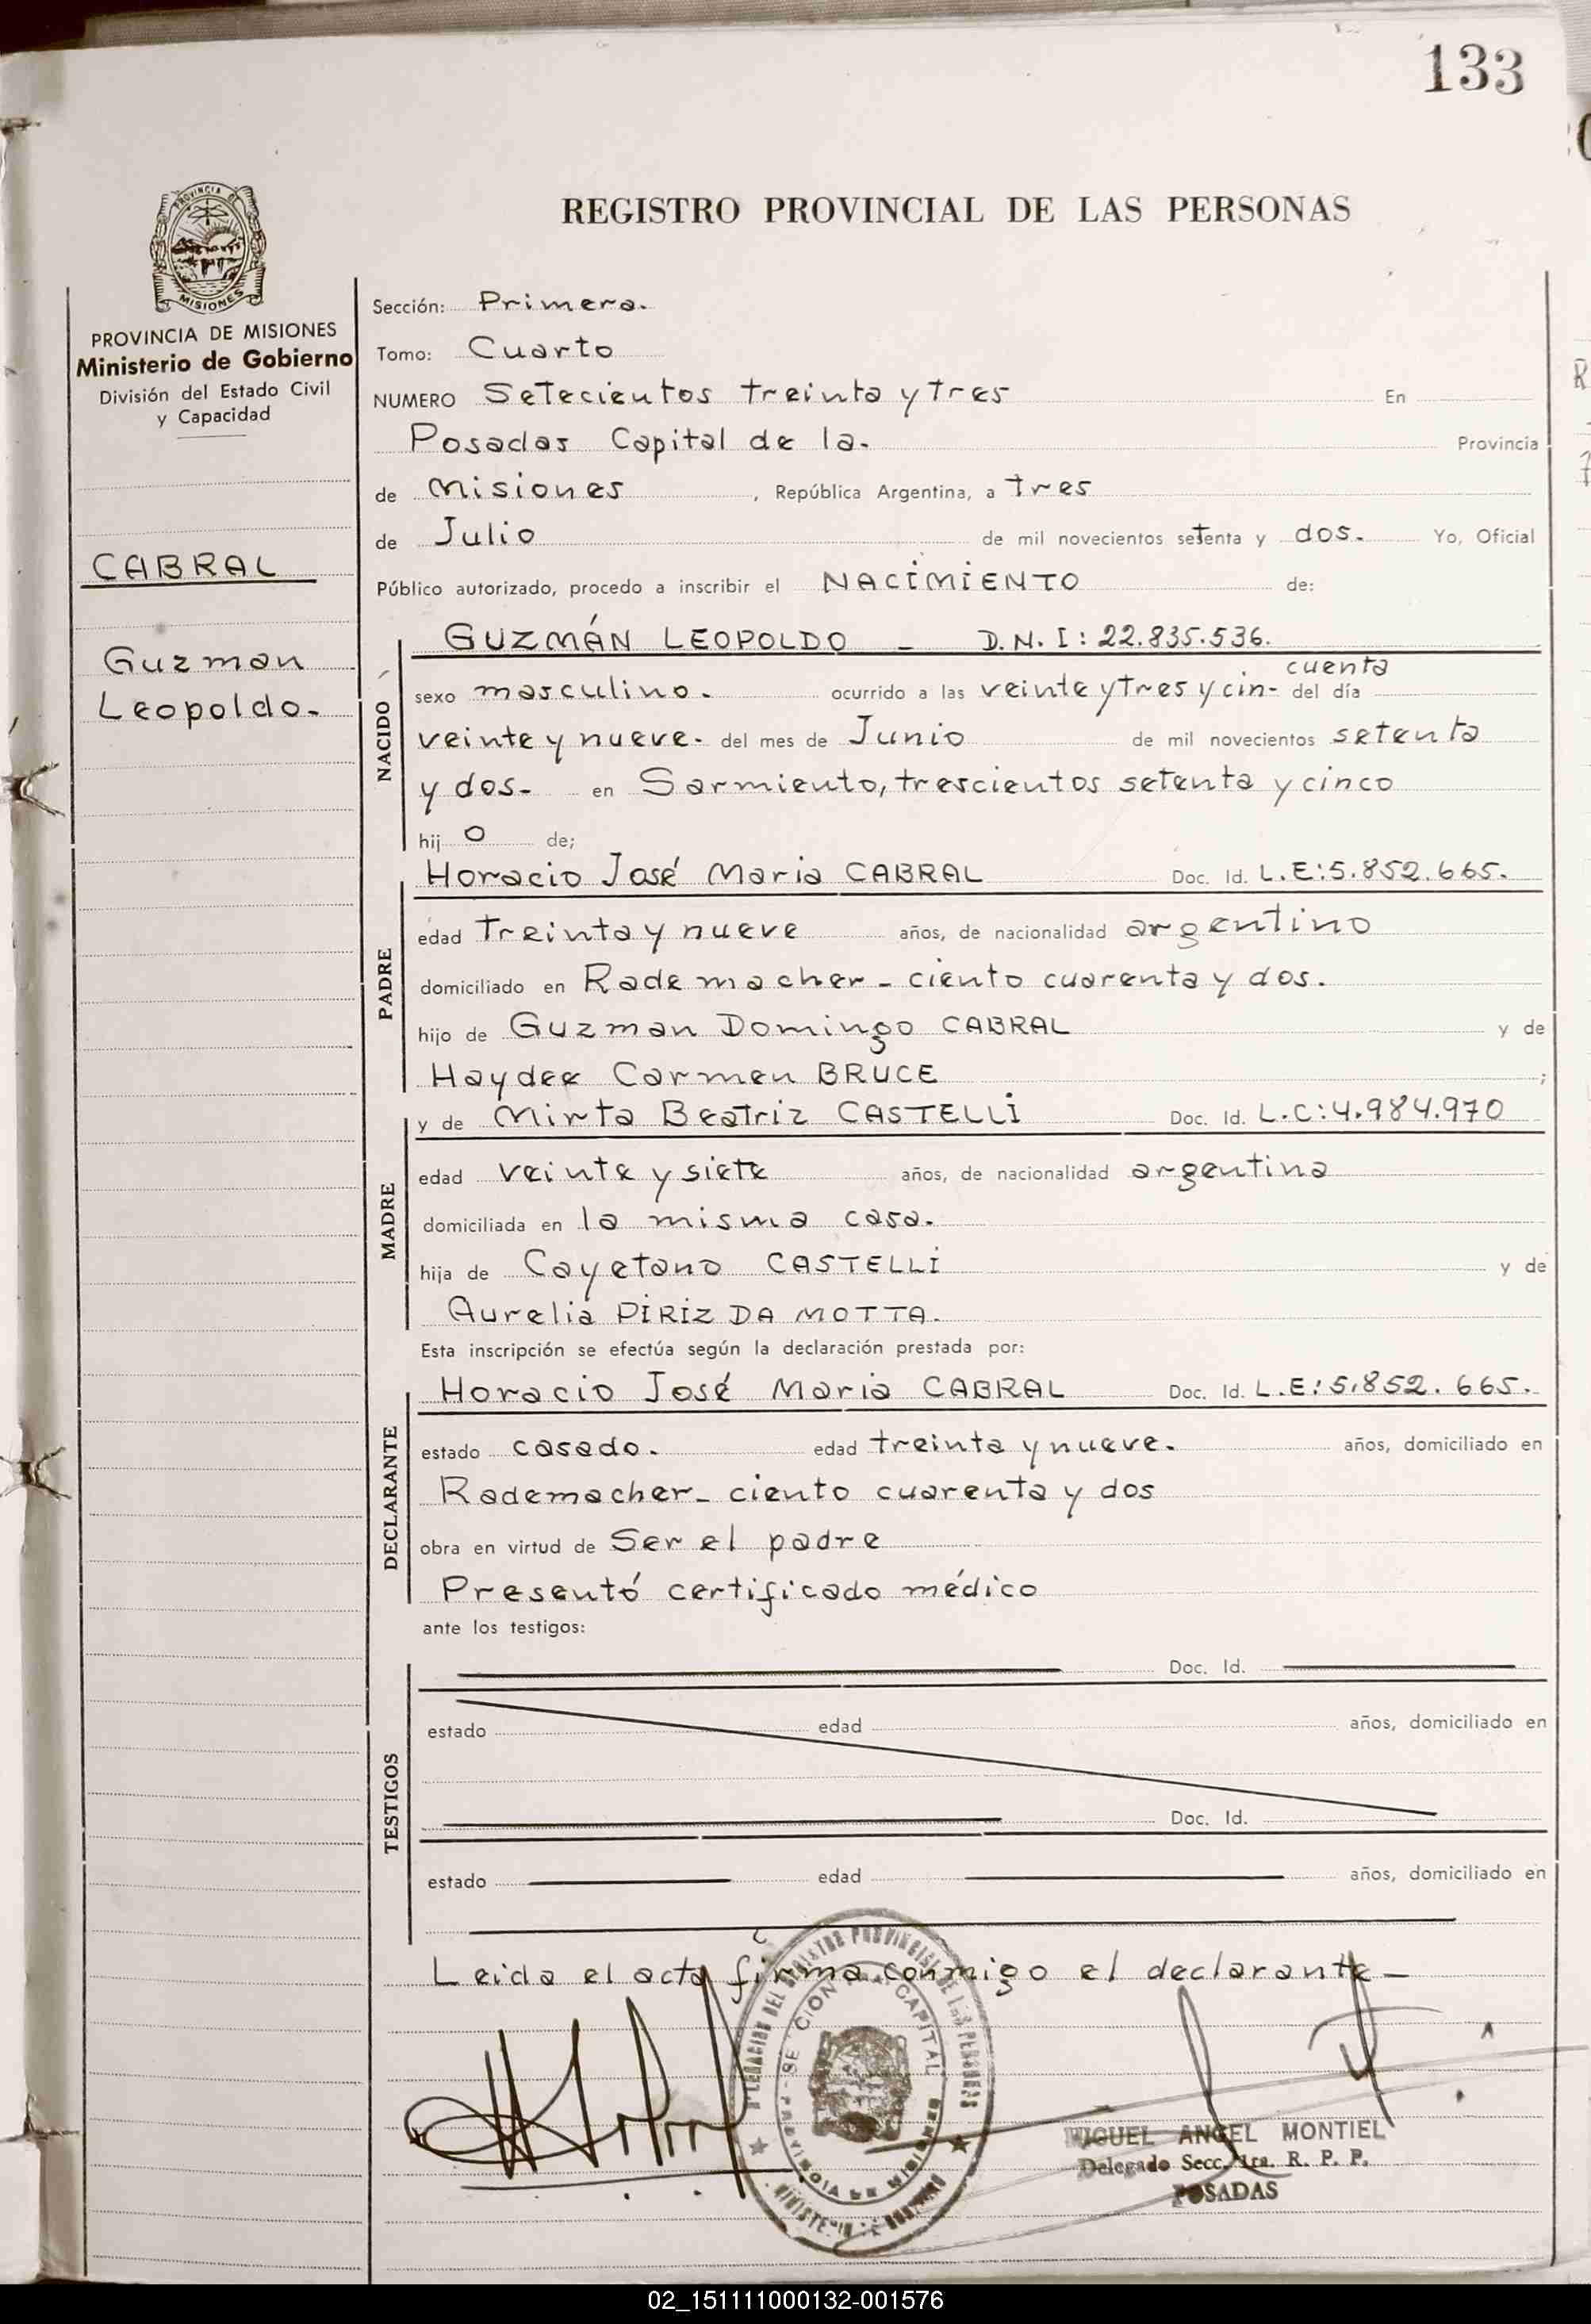 133
REGISTRO PROVINCIAL DE LAS PERSONAS
PROVINCIA DE MISIONES
Ministerio de Gobierno
División del Estado Civil
y Capacidad
CABRAL
Guzman
Leopoldo-
Sección: Primera.
Tomo: Cuarto
NUMERO Setecientos treinta y tres En
Posadas Capital de la- Provincia
de Misiones, República Argentina, a tres
de Julio de mil novecientos setenta y dos. Yo, Oficial
Público autorizado, procedo a inscribir el NACIMIENTO de:
NACIDO
GUZMÁN LEOPOLDO - D.N.I: 22.835.536.
cuenta
sexo masculino. ocurrido a las veinte y tres y cin- del día
veinte y nueve- del mes de Junio de mil novecientos setenta
y dos- en Sarmiento, trescientos setenta y cinco
hij o de;
PADRE
Horacio José Maria CABRAL Doc. Id. L.E:5.852.665.
edad Treinta y nueve años, de nacionalidad argentino
domiciliado en Rademacher - ciento cuarenta y dos.
hijo de Guzman Domingo CABRAL y de
Haydee Carmen BRUCE ;
MADRE
y de Mirta Beatriz CASTELLI Doc. Id. L.C:4.984.970
edad veinte y siete años, de nacionalidad argentina
domiciliada en la misma casa.
hija de Cayetano CASTELLI y de
Aurelia PIRIZ DA MOTTA.
Esta inscripción se efectúa según la declaración prestada por:
DECLARANTE
Horacio José Maria CABRAL Doc. Id. L.E:5.852.665.
estado casado. edad treinta y nueve. años, domiciliado en
Rademacher- ciento cuarenta y dos
obra en virtud de Ser el padre
Presentó certificado médico
ante los testigos:
TESTIGOS
Doc. Id.
estado edad años, domiciliado en
Doc. Id.
estado edad años, domiciliado en
Leida el acta firma conmigo el declarante-
MIGUEL ANGEL MONTIEL
Delegado Secc. 1ra. R. P. P.
POSADAS
02_151111000132-001576